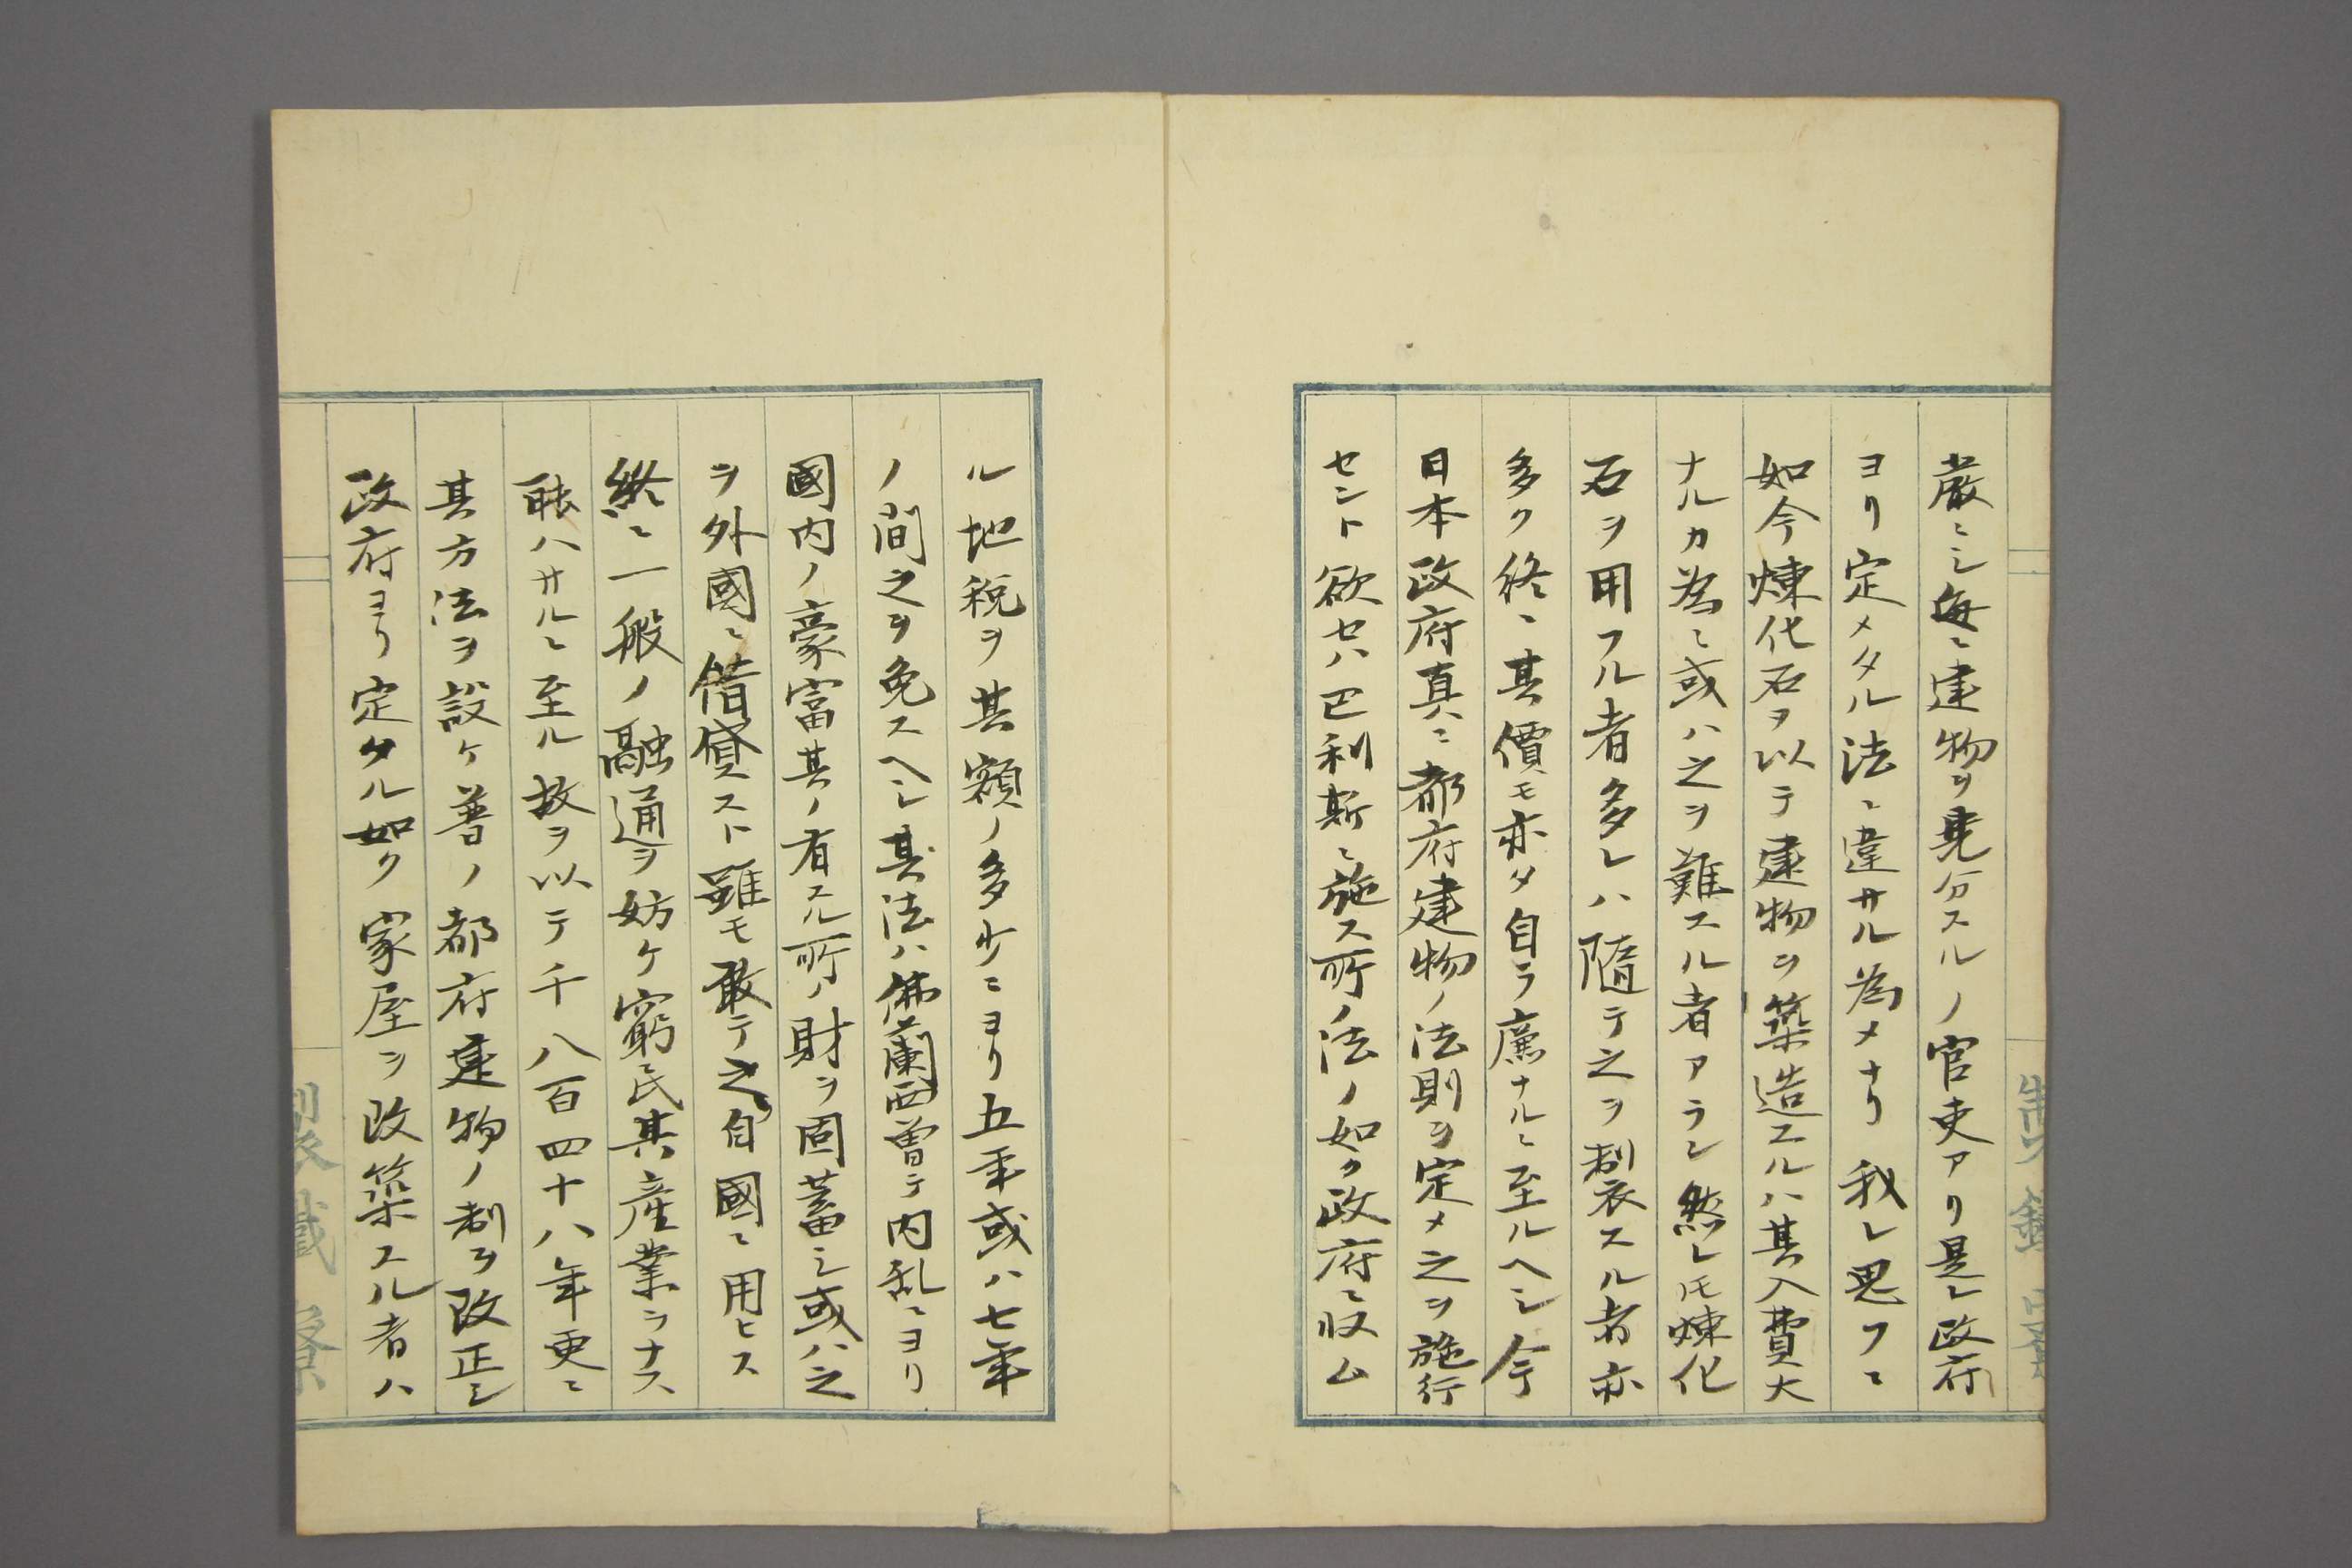 厳ニシ毎ニ建物ヲ見分スルノ官吏アリ是レ政府
ヨリ定メタル法ニ違サル為メナリ我レ思フニ
如今煉化石ヲ以テ建物ヲ築造スルハ其入費大
ナルカ為ニ或ハ之ヲ難スル者アラン然レ𪜈煉化
石ヲ用フル者多シハ隨テ之ヲ製スル者亦
多ク終ニ其價モ亦タ自ラ廉ナルニ至ルヘシ今
日本政府真ニ都府建物ノ法則ヲ定メ之ヲ施行
セント欲セハ巴利斯ニ施ス所ノ法ノ如ク政府ニ收ム
ル地税ヲ其額ノ多少ニヨリ五年或ハ七年
ノ間之ヲ免スヘシ其法ハ佛蘭西曽テ内乱ニヨリ
國内ノ豪富其ノ有スル所ノ財ヲ固蓄シ或ハ之
ヲ外國ニ借貸スト雖モ敢テ之ヲ自國ニ用ヒス
終ニ一般ノ融通ヲ妨ケ窮民其産業ヲナス
能ハサルニ至ル故ヲ以テ千八百四十八年更ニ
其方法ヲ設ケ普ノ都府建物ノ制ヲ改正シ
政府ヨリ定タル如ク家屋ヲ改築スル者ハ